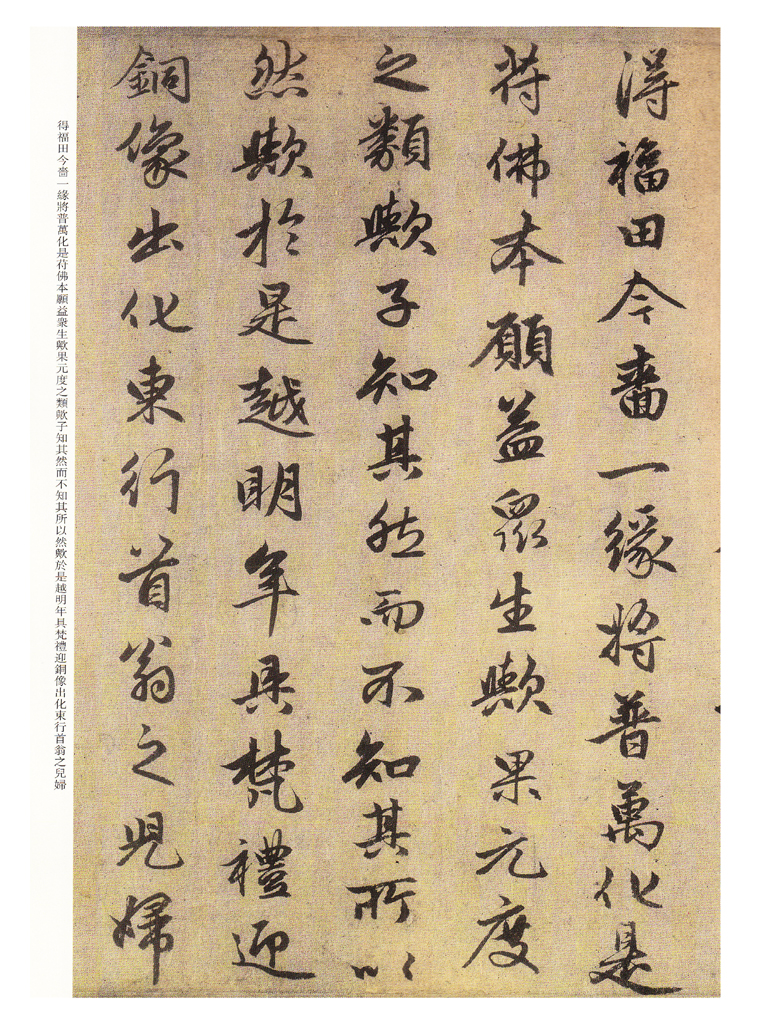 得福田今嗇一緣將普萬化是
荷佛本願益衆生歟果元度
之類歟子知其然而不知其所以
然歟於是越明年具梵禮迎
銅像出化東行首翁之兒婦
得福田今嗇一緣將普萬化是荷佛本願益衆生歟果元度之類歟子知其然而不知其所以然歟於是越明年具梵禮迎銅像出化東行首翁之兒婦